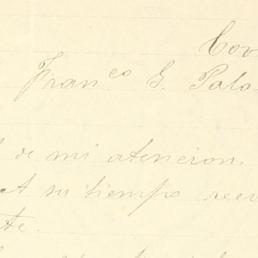 Cov
Franco G. Pala
de mi atencion.
A su tiempo rec
te.